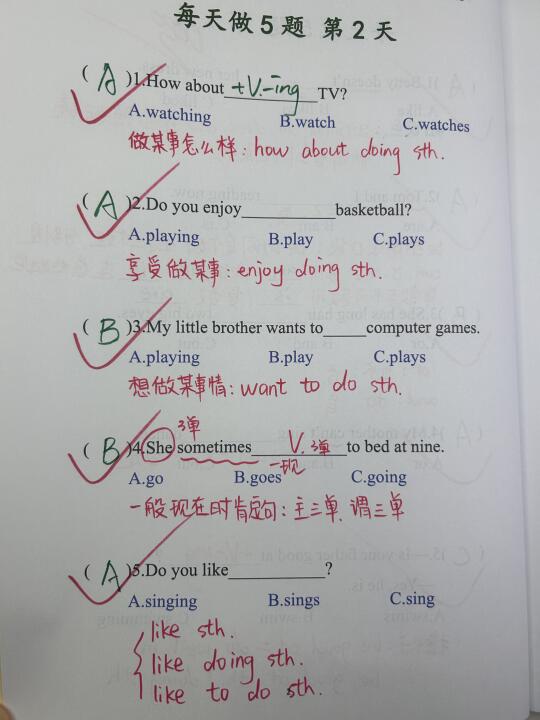 每天做5题 第2天
( A )1.How about +V-ing TV?
A.watching B.watch C.watches
做某事怎么样: how about doing sth.
( A )2.Do you enjoy__________basketball?
A.playing B.play C.plays
享受做某事: enjoy doing sth.
( B )3.My little brother wants to_____computer games.
A.playing B.play C.plays
想做某事情: want to do sth.
三单
( B )4.She sometimes V.三单 to bed at nine.
一现
A.go B.goes C.going
一般现在时肯定句: 主三单, 谓三单
( A )5.Do you like__________?
A.singing B.sings C.sing
like sth.
like doing sth.
like to do sth.